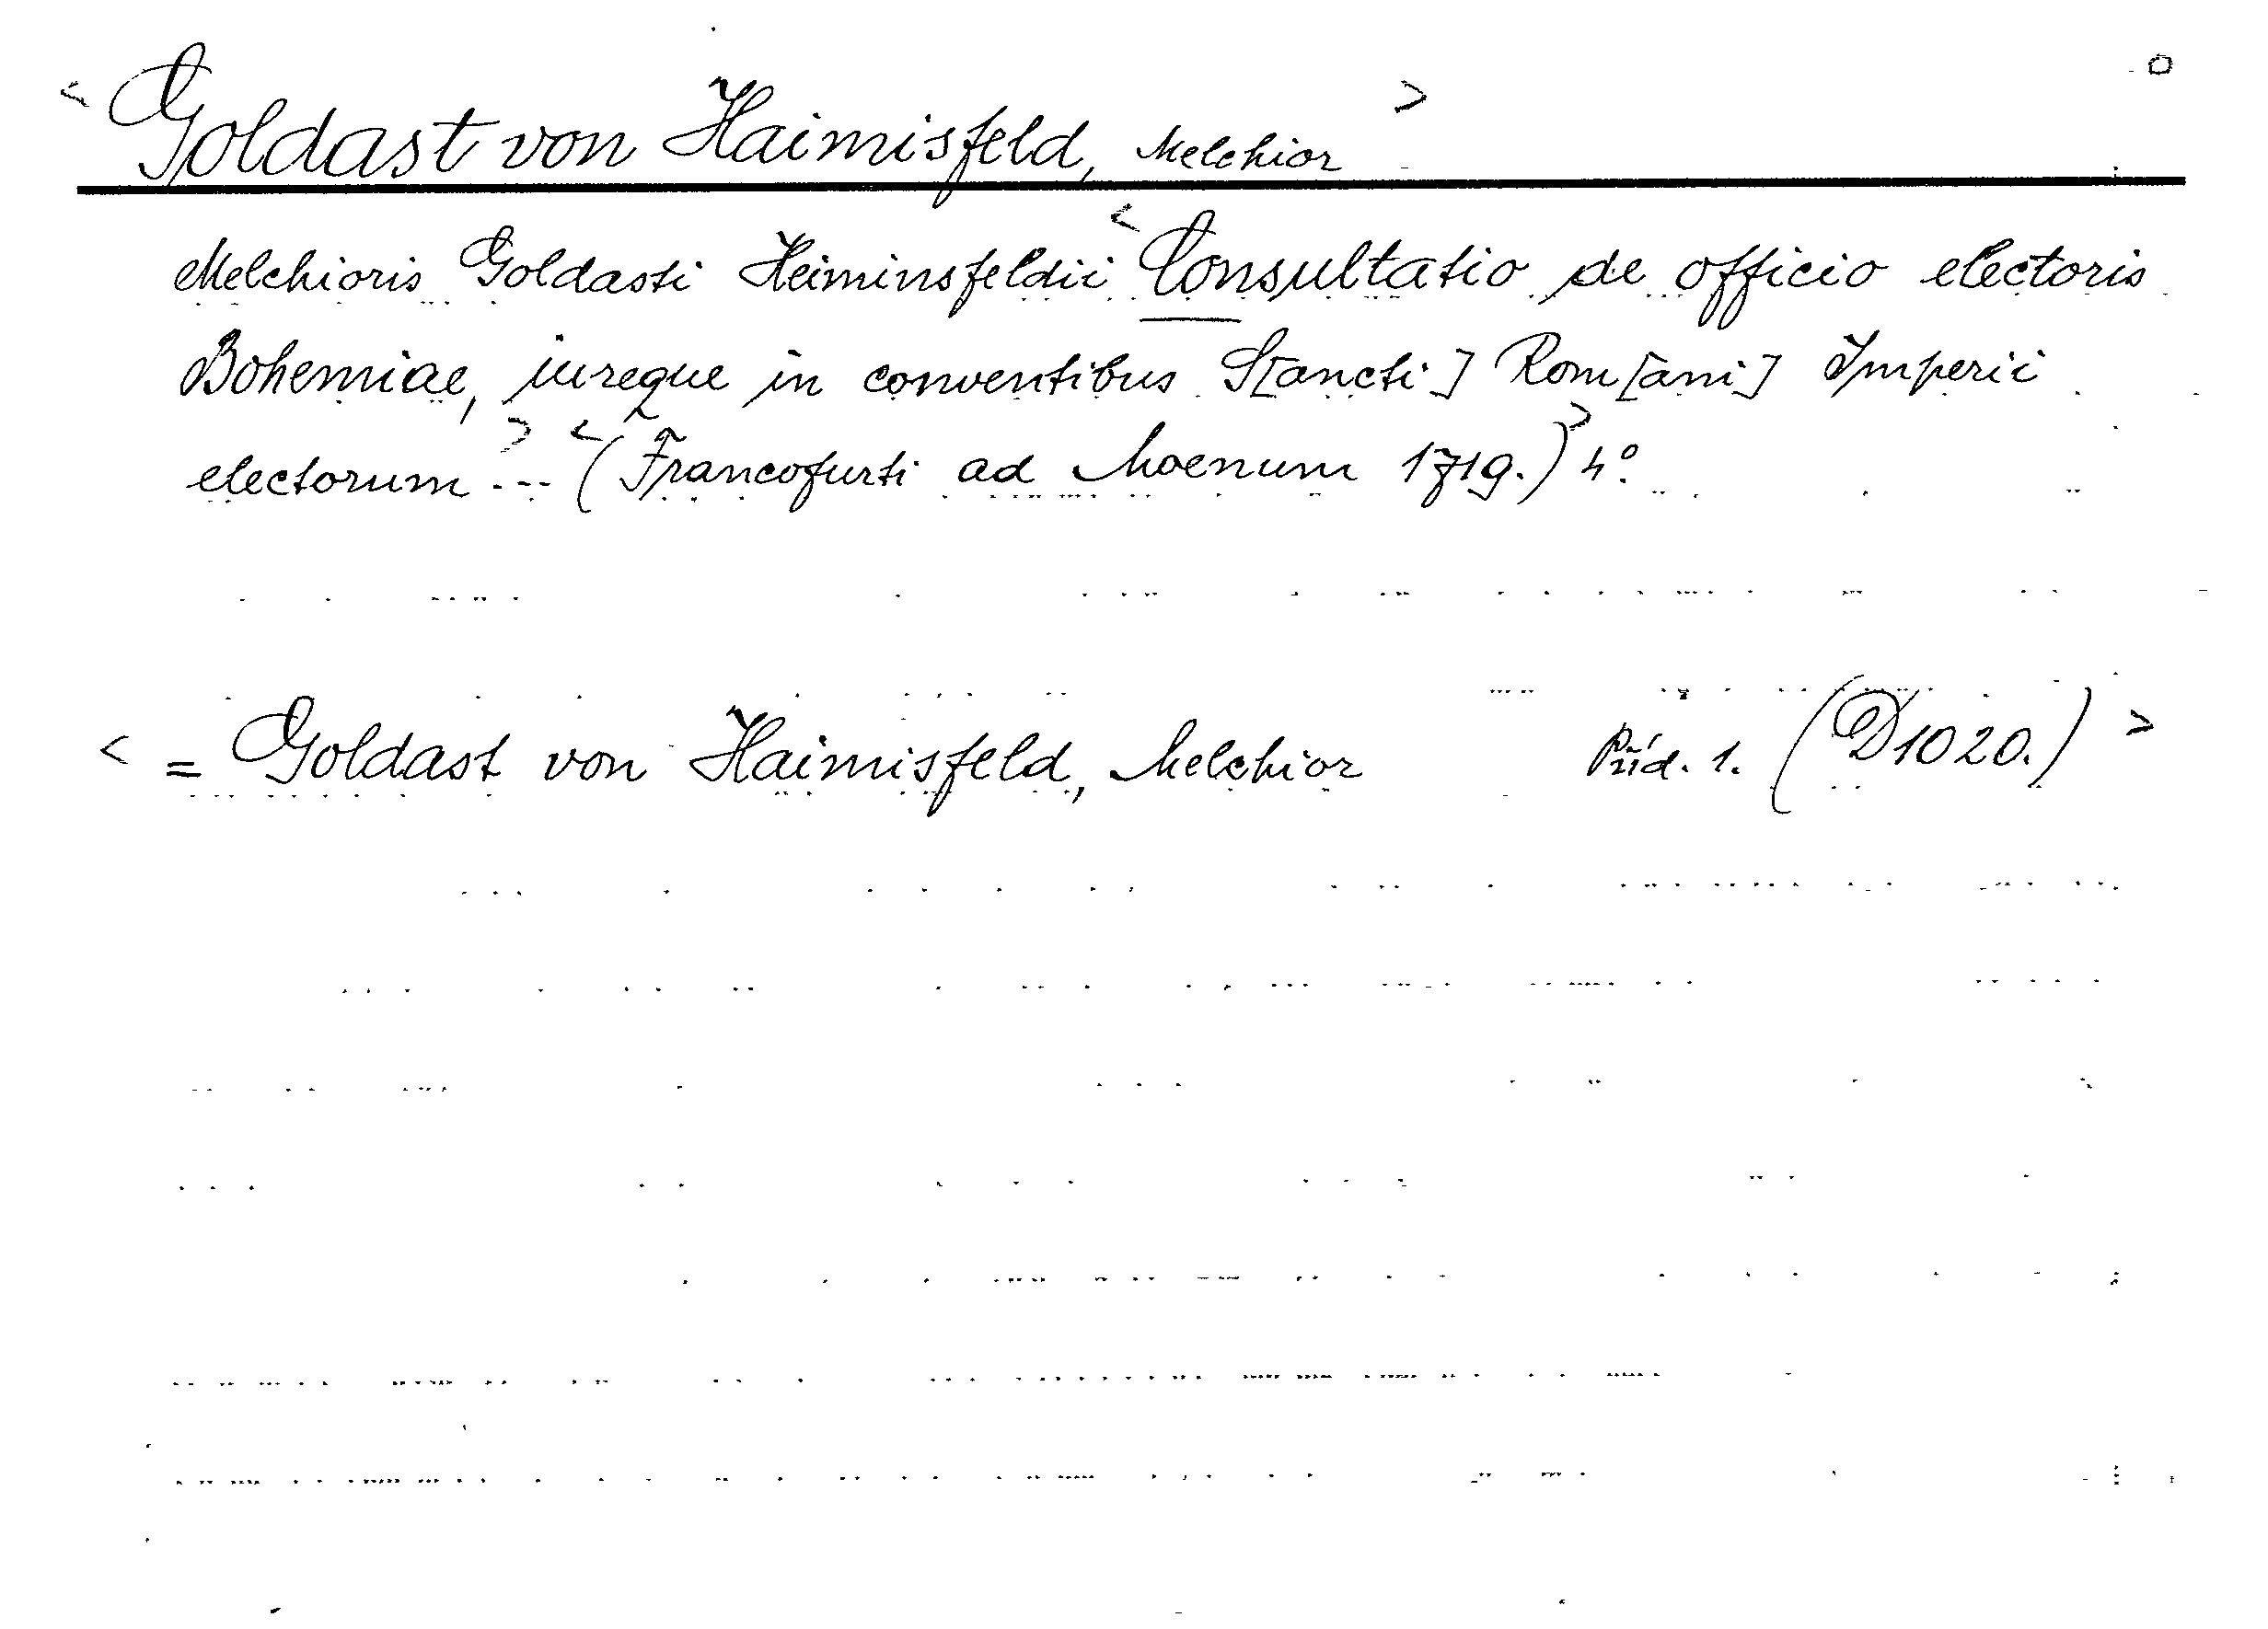 <Goldast von Haimisfeld, Melchior>
Melchioris Goldasti Heiminsfeldii <Consultatio de officio electoris
Bohemiae, iureque in conventibus S[ancti] Rom[ani] Imperii
electorum...> <(Francofurti ad Moenum 1719.)> 4°.
<= Goldast von Haimisfeld, Melchior Příd. 1. (D1020.)>